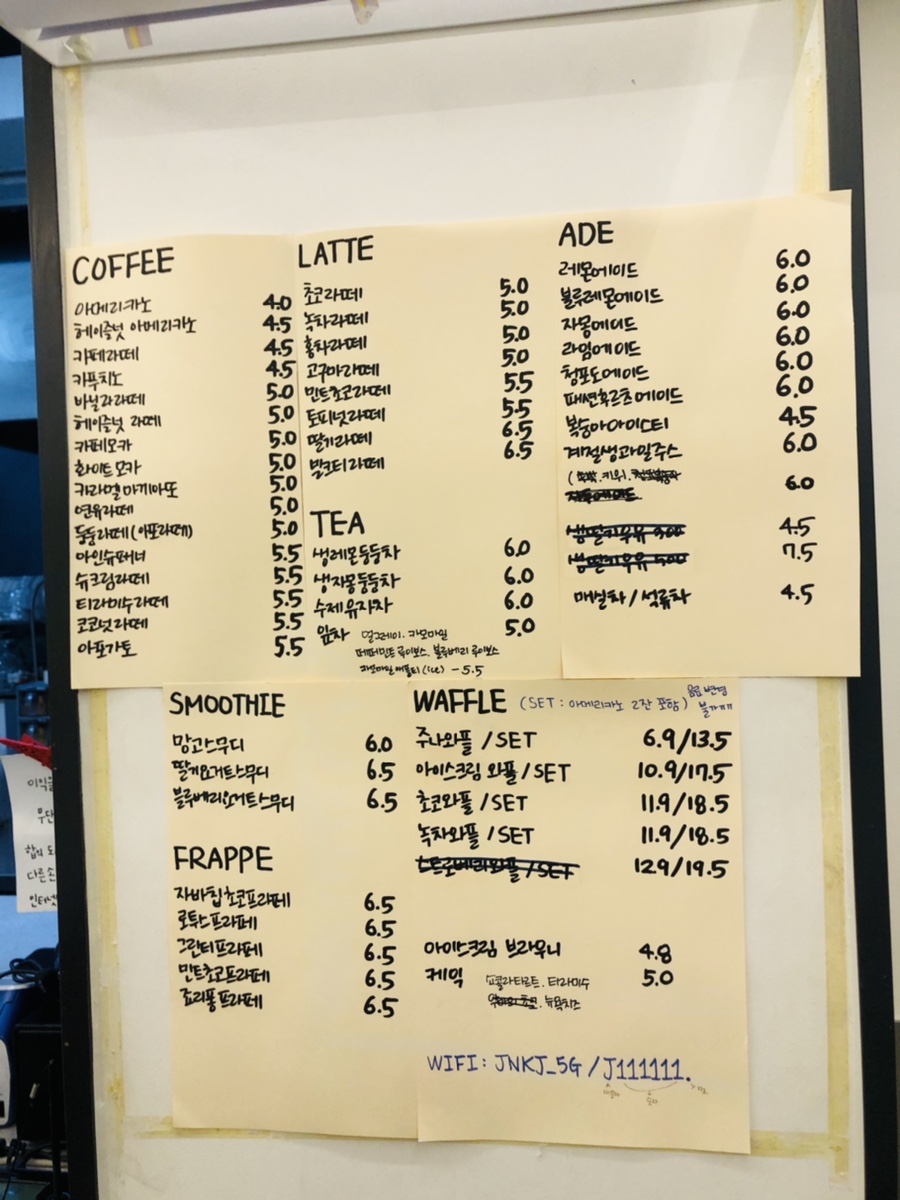 COFFEE
아메리카노 4.0
헤이즐넛 아메리카노 4.5
카페라떼 4.5
카푸치노 4.5
바닐라라떼 5.0
헤이즐넛 라떼 5.0
카페모카 5.0
화이트모카 5.0
카라멜마끼아또 5.0
연유라떼 5.0
둥둥라떼(아포라떼) 5.0
아인슈페너 5.5
슈크림라떼 5.5
티라미수라떼 5.5
코코넛라떼 5.5
아포가토 5.5
LATTE
초코라떼 5.0
녹차라떼 5.0
홍차라떼 5.0
고구마라떼 5.0
민트초코라떼 5.5
토피넛라떼 5.5
딸기라떼 6.5
밀크티라떼 6.5
TEA
생레몬둥둥차 6.0
생자몽둥둥차 6.0
수제유자차 6.0
잎차 얼그레이. 카모마일 5.0
페퍼민트 루이보스. 블루베리 루이보스
카모마일애플티(ice) - 5.5
ADE
레몬에이드 6.0
블루레몬에이드 6.0
자몽에이드 6.0
라임에이드 6.0
청포도에이드 6.0
패션후르츠에이드 6.0
복숭아아이스티 4.5
계절생과일주스 6.0
키위.
6.0
생딸기우유 300 4.5
생딸기우유 500 7.5
매실차/석류차 4.5
SMOOTHIE
망고스무디 6.0
딸기요거트스무디 6.5
블루베리요거트스무디 6.5
FRAPPE
자바칩초코프라페 6.5
로투스프라페 6.5
그린티프라페 6.5
민트초코프라페 6.5
죠리퐁프라페 6.5
WAFFLE (SET : 아메리카노 2잔 포함) 음료 변경
불가
주나와플 /SET 6.9/13.5
아이스크림 와플/SET 10.9/17.5
초코와플 /SET 11.9/18.5
녹차와플 /SET 11.9/18.5
스트로베리와플/SET 12.9/19.5
아이스크림 브라우니 4.8
케익 쇼콜라타르트. 티라미수 5.0
뉴욕치즈
WIFI: JNKJ_5G / J111111.